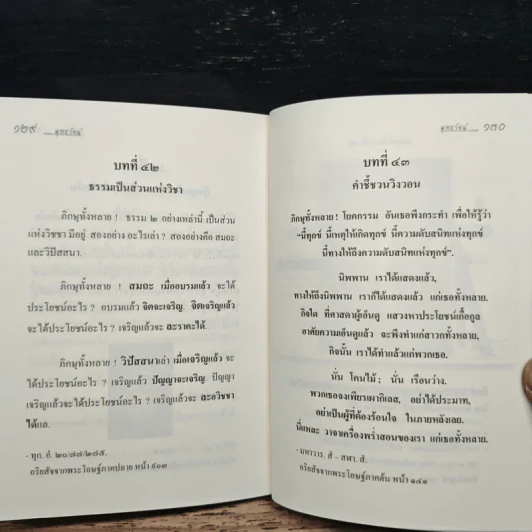 ๑๒๙ __ พุทธวัจน์
บทที่ ๔๒
ธรรมเป็นส่วนแห่งวิชชา
ภิกษุทั้งหลาย ! ธรรม ๒ อย่างเหล่านี้ เป็นส่วน
แห่งวิชชา มีอยู่ สองอย่าง อะไรเล่า ? สองอย่างคือ สมถะ
และวิปัสสนา.
ภิกษุทั้งหลาย ! สมถะ เมื่ออบรมแล้ว จะได้
ประโยชน์อะไร ? อบรมแล้ว จิตจะเจริญ. จิตเจริญแล้ว
จะได้ประโยชน์อะไร ? เจริญแล้วจะ ละราคะได้.
ภิกษุทั้งหลาย ! วิปัสสนาเล่า เมื่อเจริญแล้ว จะ
ได้ประโยชน์อะไร ? เจริญแล้ว ปัญญาจะเจริญ. ปัญญา
เจริญแล้วจะได้ประโยชน์อะไร ? เจริญแล้วจะ ละอวิชชา
ได้แล.
- ทุก. อํ. ๒๐/๗๗/๒๗๕.
อริยสัจจากพระโอษฐ์ภาคปลาย หน้า ๙๐๓
พุทธวัจน์ __ ๑๓๐
บทที่ ๔๓
คำชี้ชวนวิงวอน
ภิกษุทั้งหลาย ! โยคกรรม อันเธอพึงกระทำ เพื่อให้รู้ว่า
“นี้ทุกข์ นี้เหตุให้เกิดทุกข์ นี้ความดับสนิทแห่งทุกข์
นี้ทางให้ถึงความดับสนิทแห่งทุกข์”.
นิพพาน เราได้แสดงแล้ว,
ทางให้ถึงนิพพาน เราก็ได้แสดงแล้ว แก่เธอทั้งหลาย.
กิจใด ที่ศาสดาผู้เอ็นดู แสวงหาประโยชน์เกื้อกูล
อาศัยความเอ็นดูแล้ว จะพึงทำแก่สาวกทั้งหลาย,
กิจนั้น เราได้ทำแล้วแก่พวกเธอ.
นั่น โคนไม้ ; นั่น เรือนว่าง.
พวกเธอจงเพียรเผากิเลส, อย่าได้ประมาท,
อย่าเป็นผู้ที่ต้องร้อนใจ ในภายหลังเลย.
นี่แหละ วาจาเครื่องพร่ำสอนของเรา แก่เธอทั้งหลาย.
- มหาวาร. สํ - สฬา. สํ.
อริยสัจจากพระโอษฐ์ภาคต้น หน้า ๑๔๑